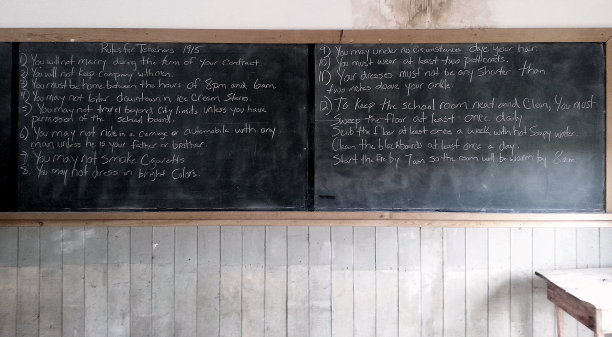 Rules for Teachers 1915
1) You will not marry during the term of your contract.
2) You will not keep company with men.
3) You must be home between the hours of 8pm and 6am.
4) You may not loiter downtown in ice cream stores.
5) You may not travel beyond city limits unless you have
permission of the school board.
6) You may not ride in a carriage or automobile with any
man unless he is your father or brother.
7) You may not smoke cigarettes
8. You may not dress in bright colors.
9) You may under no circumstances dye your hair.
10) You must wear at least two petticoats.
11) Your dresses must not be any shorter than
two inches above your ankle.
12) To keep the school room neat and clean, you must
Sweep the floor at least once daily
Scrub the floor at least once a week with hot soapy water.
Clean the blackboards at least once a day.
Start the fire by 7am so the room will be warm by 8am